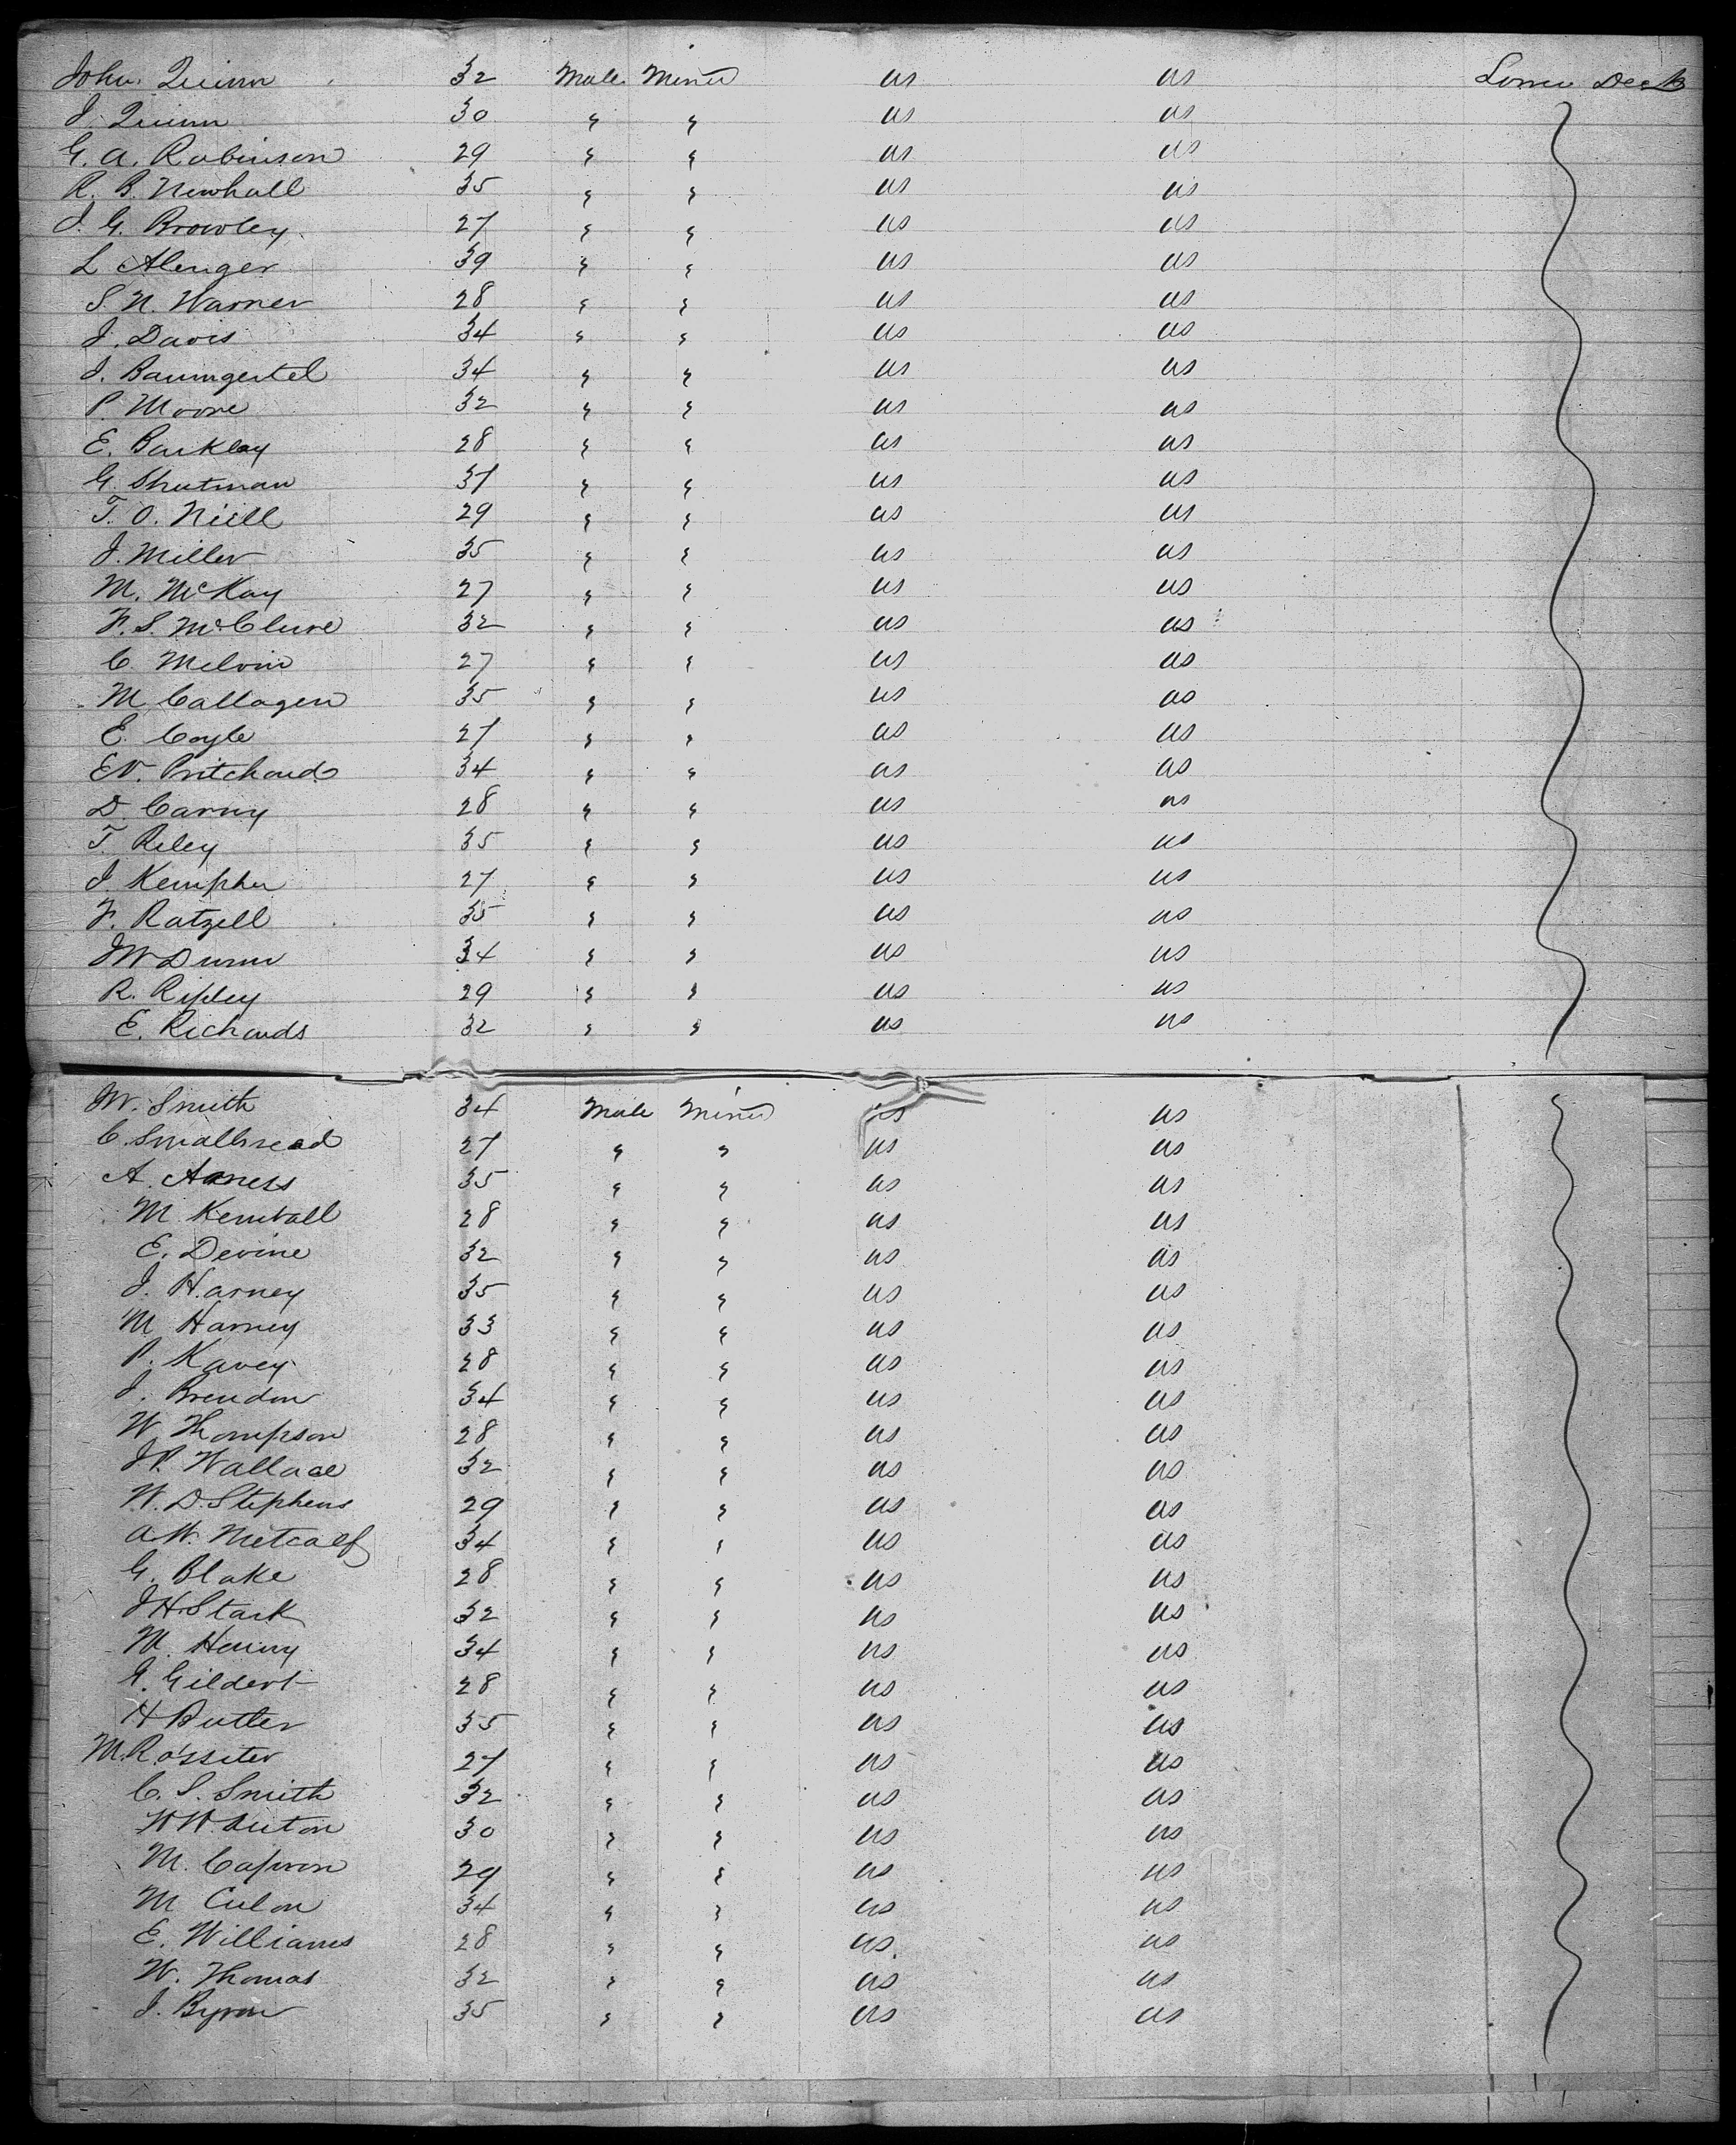 John Quinn 32 Male Miner us us Lower Deck
J. Quinn 30 " " us us
G. A. Robinson 29 " " us us
R. B. Newhall 35 " " us us
J. G. Browley 27 " " us us
L Alenger 39 " " us us
S. N. Warner 28 " " us us
J. Davis 34 " " us us
J. Baumgertel 34 " " us us
P. Moore 32 " " us us
E. Barkley 28 " " us us
G. Shutman 37 " " us us
T. O. Niell 29 " " us us
J. Miller 35 " " us us
M. McKay 27 " " us us
F. S. McClure 32 " " us us
C. Melvin 27 " " us us
M Callagen 35 " " us us
E. Coyle 27 " " us us
E V. Pritchard 34 " " us us
D. Carny 28 " " us us
T. Riley 35 " " us us
J. Kempher 27 " " us us
F. Ratzell 35 " " us us
J W Dunn 34 " " us us
R. Ripley 29 " " us us
E. Richards 32 " " us us
W. Smith 34 Male Miner us us
C. Smallread 27 " " us us
A. 35 " " us us
M Kemball 28 " " us us
E. Devine 32 " " us us
J. Harney 35 " " us us
M Harney 33 " " us us
P. Kavey 28 " " us us
J. Brendon 34 " " us us
W. Thompson 28 " " us us
J P. Wallace 32 " " us us
W. D. Stephens 29 " " us us
A. W. Metcalf 34 " " us us
G. Blake 28 " " us us
J H Stark 32 " " us us
M. Henry 34 " " us us
G. Gildert 28 " " us us
H Butler 35 " " us us
M. Rossiter 27 " " us us
C. S. Smith 32 " " us us
W W. 30 " " us us
M. Capron 29 " " us us
M Culon 34 " " us us
E. Williams 28 " " us us
W. Thomas 32 " " us us
J. Byron 35 " " us us